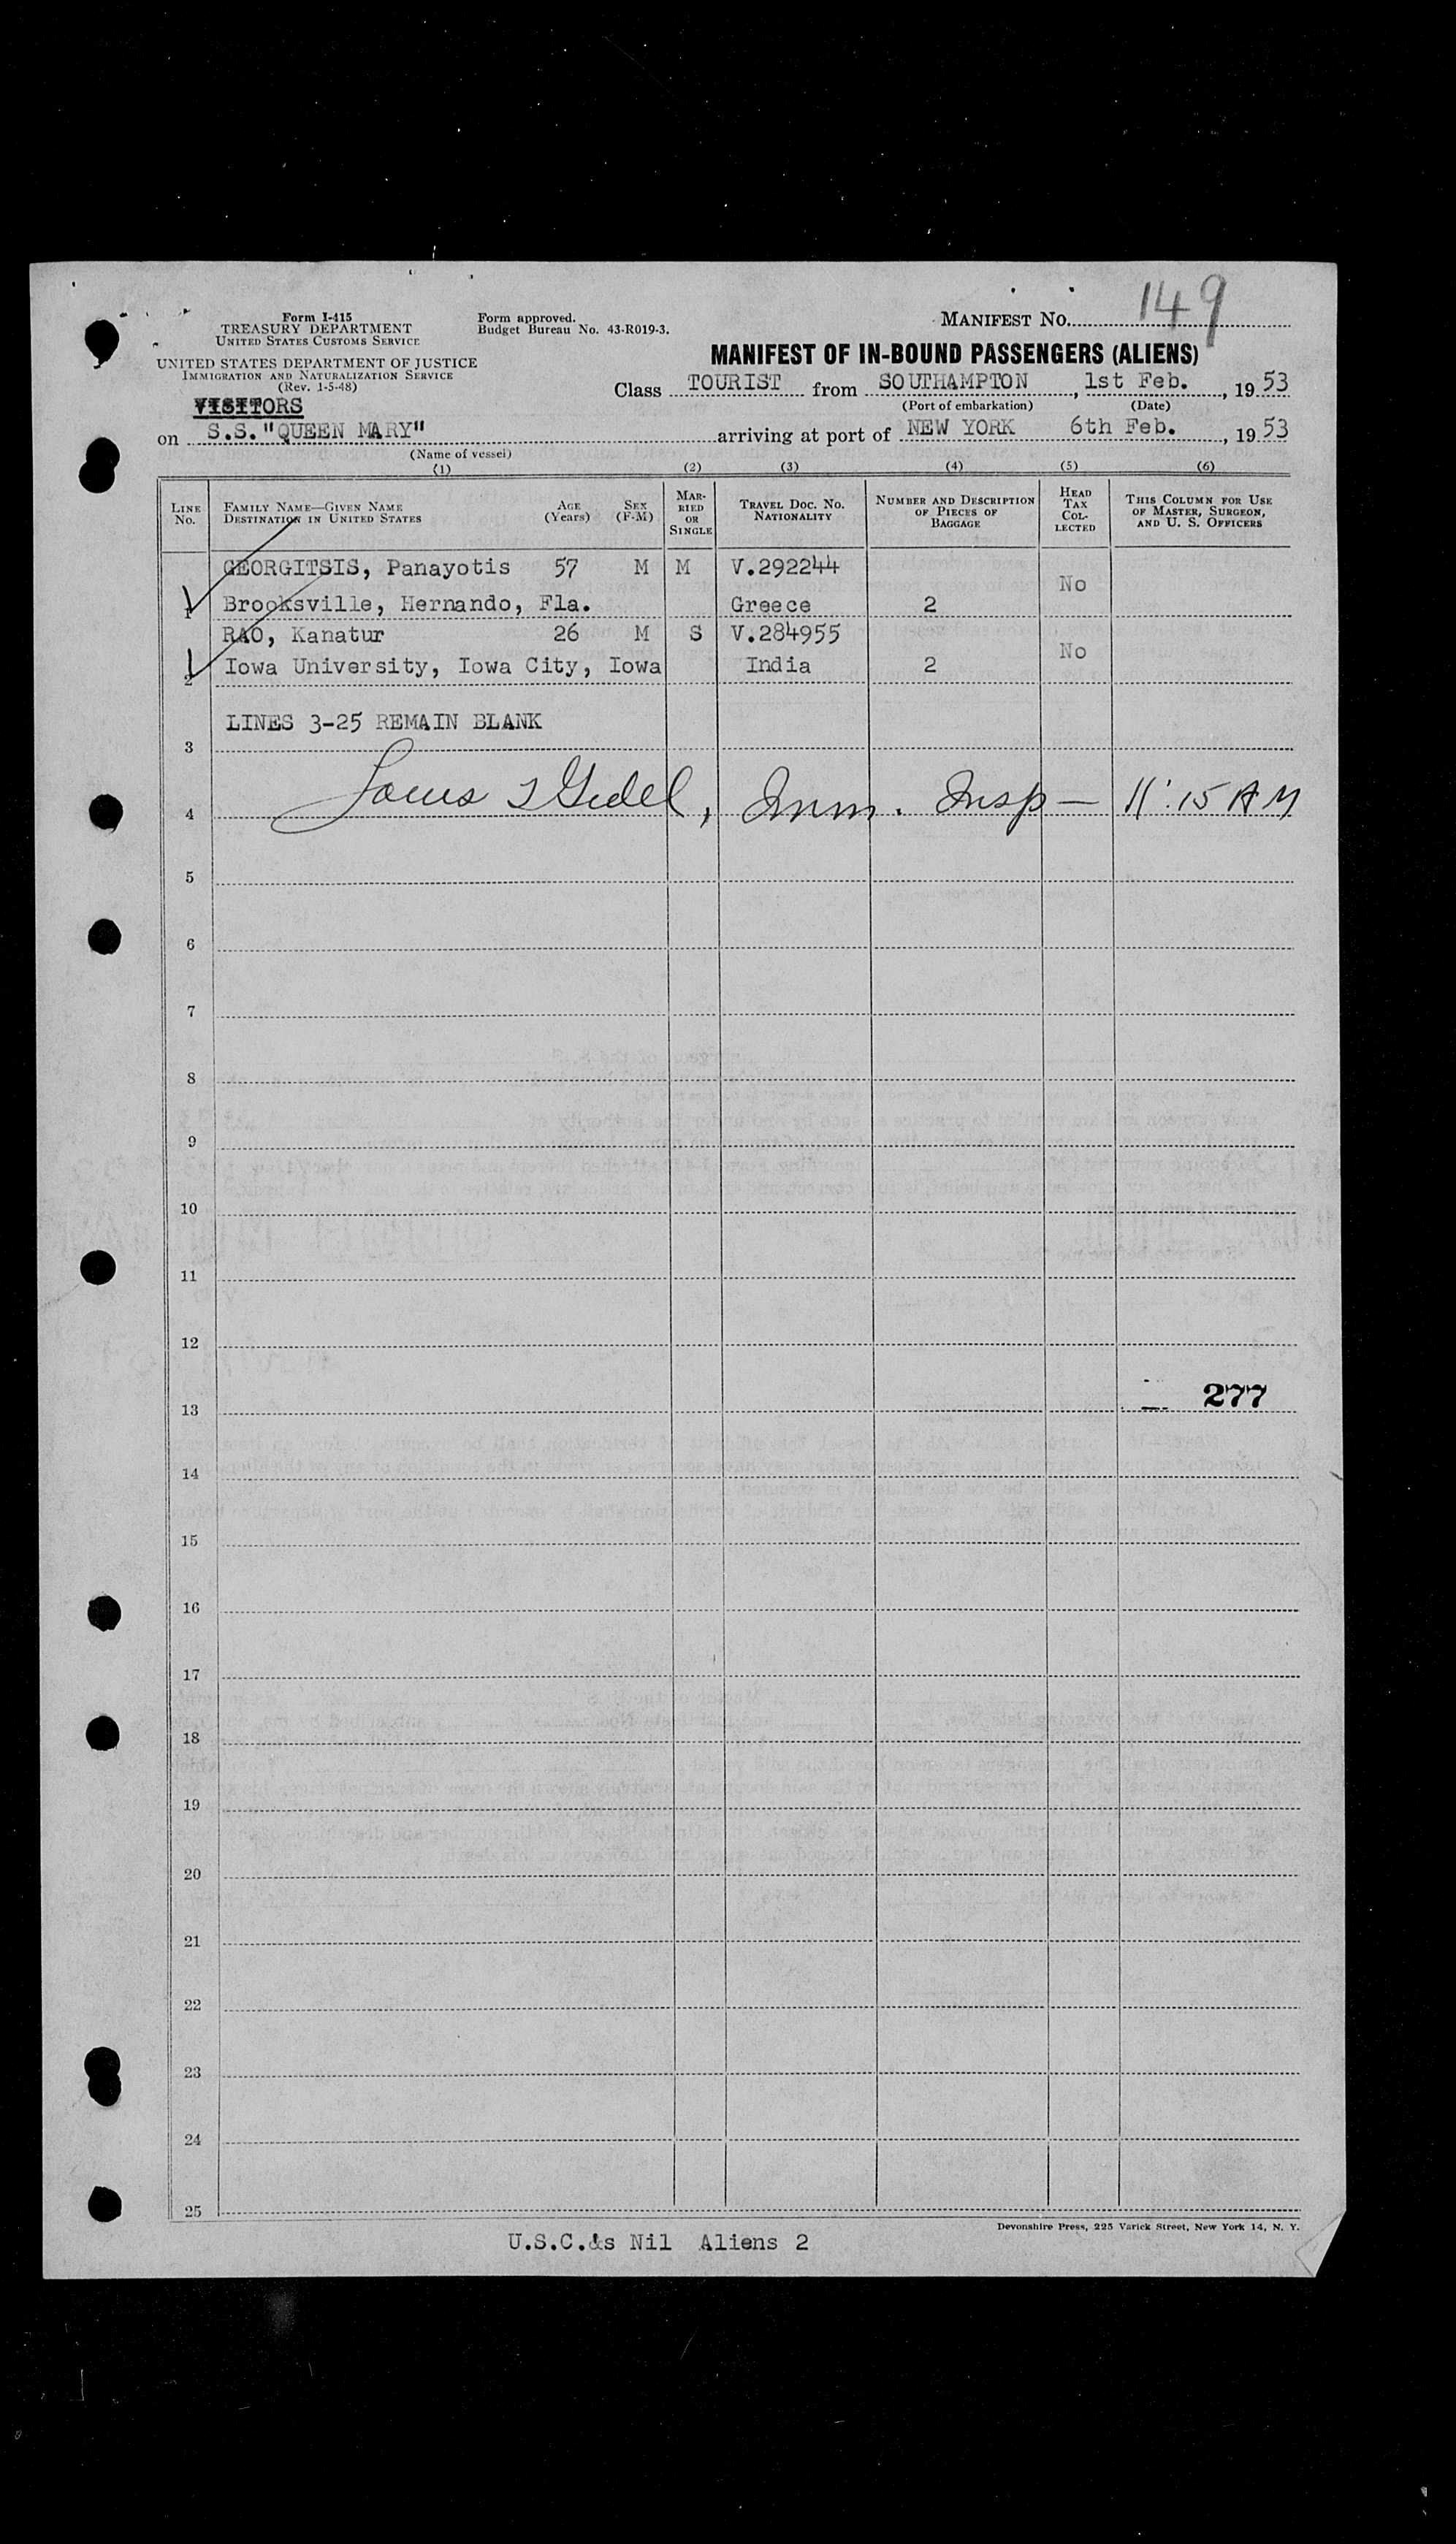 149
Form I-415
TREASURY DEPARTMENT
UNITED STATES CUSTOMS SERVICE
Form approved.
Budget Bureau No. 43-R019-3.
MANIFEST NO.
UNITED STATES DEPARTMENT OF JUSTICE
IMMIGRATION AND NATURALIZATION SERVICE
(Rev. 1-5-48)
MANIFEST OF IN-BOUND PASSENGERS (ALIENS)
Class TOURIST from SOUTHAMPTON, 1st Feb., 1953
(Port of embarkation) (Date)
VISITORS
on S.S. "QUEEN MARY" arriving at port of NEW YORK 6th Feb., 1953
(Name of vessel)
(1) (2) (3) (4) (5) (6)
LINE No. FAMILY NAME—GIVEN NAME DESTINATION IN UNITED STATES AGE (Years) SEX (F-M) MARRIED OR SINGLE TRAVEL DOC. NO. NATIONALITY NUMBER AND DESCRIPTION OF PIECES OF BAGGAGE HEAD TAX COLLECTED THIS COLUMN FOR USE OF MASTER, SURGEON, AND U. S. OFFICERS
GEORGITSIS, Panayotis 57 M M V.292244 No
1 Brooksville, Hernando, Fla. Greece 2
RAO, Kanatur 26 M S V.284955 No
2 Iowa University, Iowa City, Iowa India 2
LINES 3-25 REMAIN BLANK
3
4 Imm. Insp — 11:15 AM
5
6
7
8
9
10
11
12
277
13
14
15
16
17
18
19
20
21
22
23
24
25
Devonshire Press, 225 Varick Street, New York 14, N. Y.
U.S.C.&s Nil Aliens 2